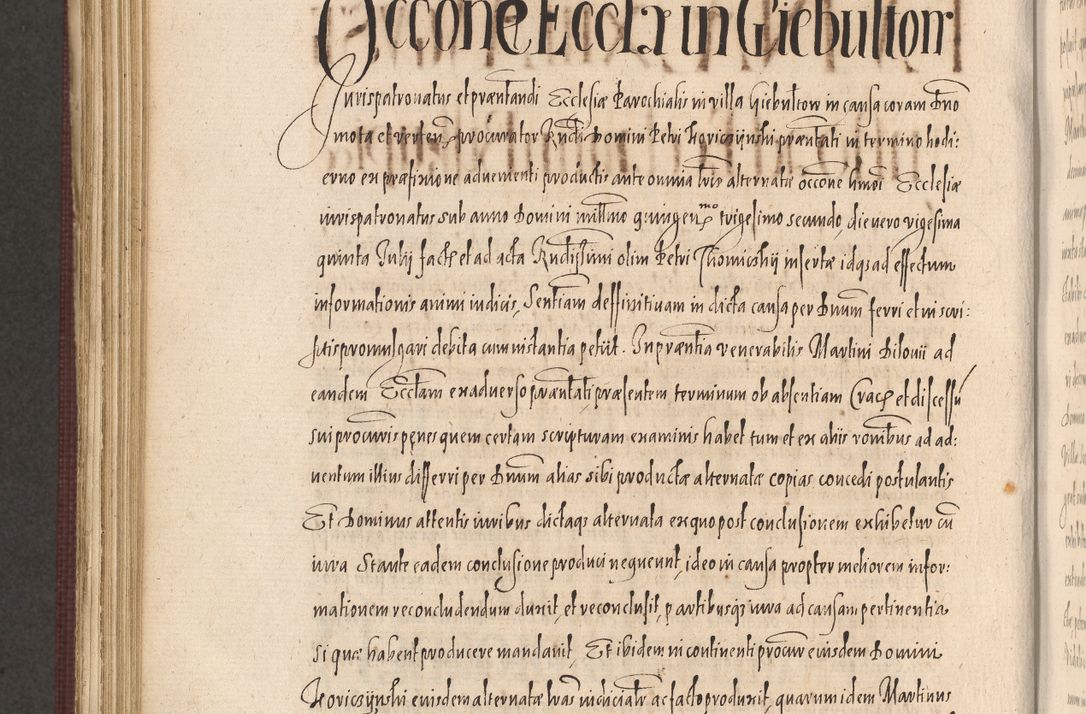 Occone Eccla in Giebulton
Jurispatronatus et præntandi Ecclesiæ Parochialis in villa Giebultow in causa coram Dno
mota et verten, procurator Rndi Domini Petri Koviczijnski præntati in termino hodi:
erno ex præfixione advenienti productis ante omnia lris alternatæ occone hmoi Ecclesiæ
iurispatronatus sub anno Domini millmo quingenmo trigesimo secundo, die vero vigesima
quinta Julij fact et ad acta Rndissimi olim Petri Thomicskij insertæ idq ad effectum
informationis animi iudicis, Sentiam deffinitivam in dicta causa per Dnum ferri et in scri:
ptis promulgari debita cum instantia petiit. In præntia venerabilis Martini Bilovii ad
eandem Ecclam ex adverso præntati præsentem terminum ob absentiam Crac et discessu
sui procuris penes quem certam scripturam examinis habet tum et ex aliis ronibus ad ad:
ventum illius differri per Dnum alias sibi productæ alternatæ copias concedi postulantis
Et Dominus attentis iuribus dictaq alternata ex quo post conclusionem exhibetur cu
iura Stante eadem conclusione produci nequeunt, ideo in causa propter meliorem infor:
mationem reconcludendum duxit, et reconclusit, partibusq iura ad causam pertinentia
Si quæ habent producere mandavit, Et ibidem in continenti procur eiusdem Domini
Koviczijnski eiusdem alternatæ lras iudicialr ac facto produxit, quarum idem Martinus